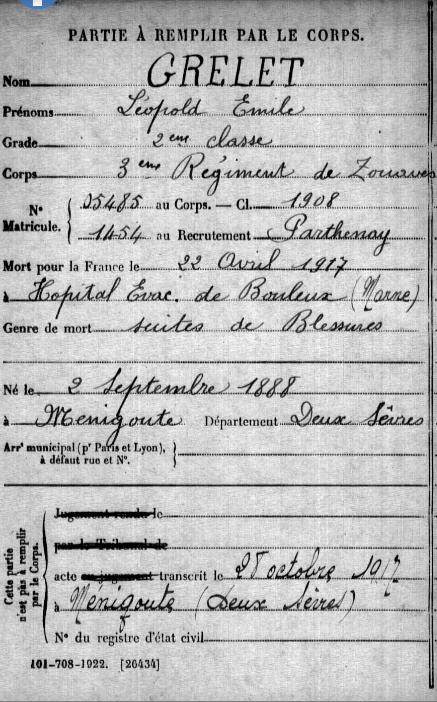 PARTIE À REMPLIR PAR LE CORPS.
Nom GRELET
Prénoms Léopold Emile
Grade 2eme classe
Corps 3eme Régiment de Zouaves
N° Matricule. { 35485 au Corps. — Cl. 1908
1454 au Recrutement Parthenay
Mort pour la France le 22 Avril 1917
à Hopital Evac. de Bouleux (Marne)
Genre de mort suites de Blessures
Né le 2 Septembre 1888
à Menigoute Département Deux Sèvres
Arrt municipal (pr Paris et Lyon), à défaut rue et N°. }
Cette partie n'est pas à remplir par le Corps.
Jugement rendu le
par le Tribunal de
acte ou jugement transcrit le 28 octobre 1917
à Ménigoute (Deux Sèvres)
N° du registre d'état civil
101-708-1922. [26434]